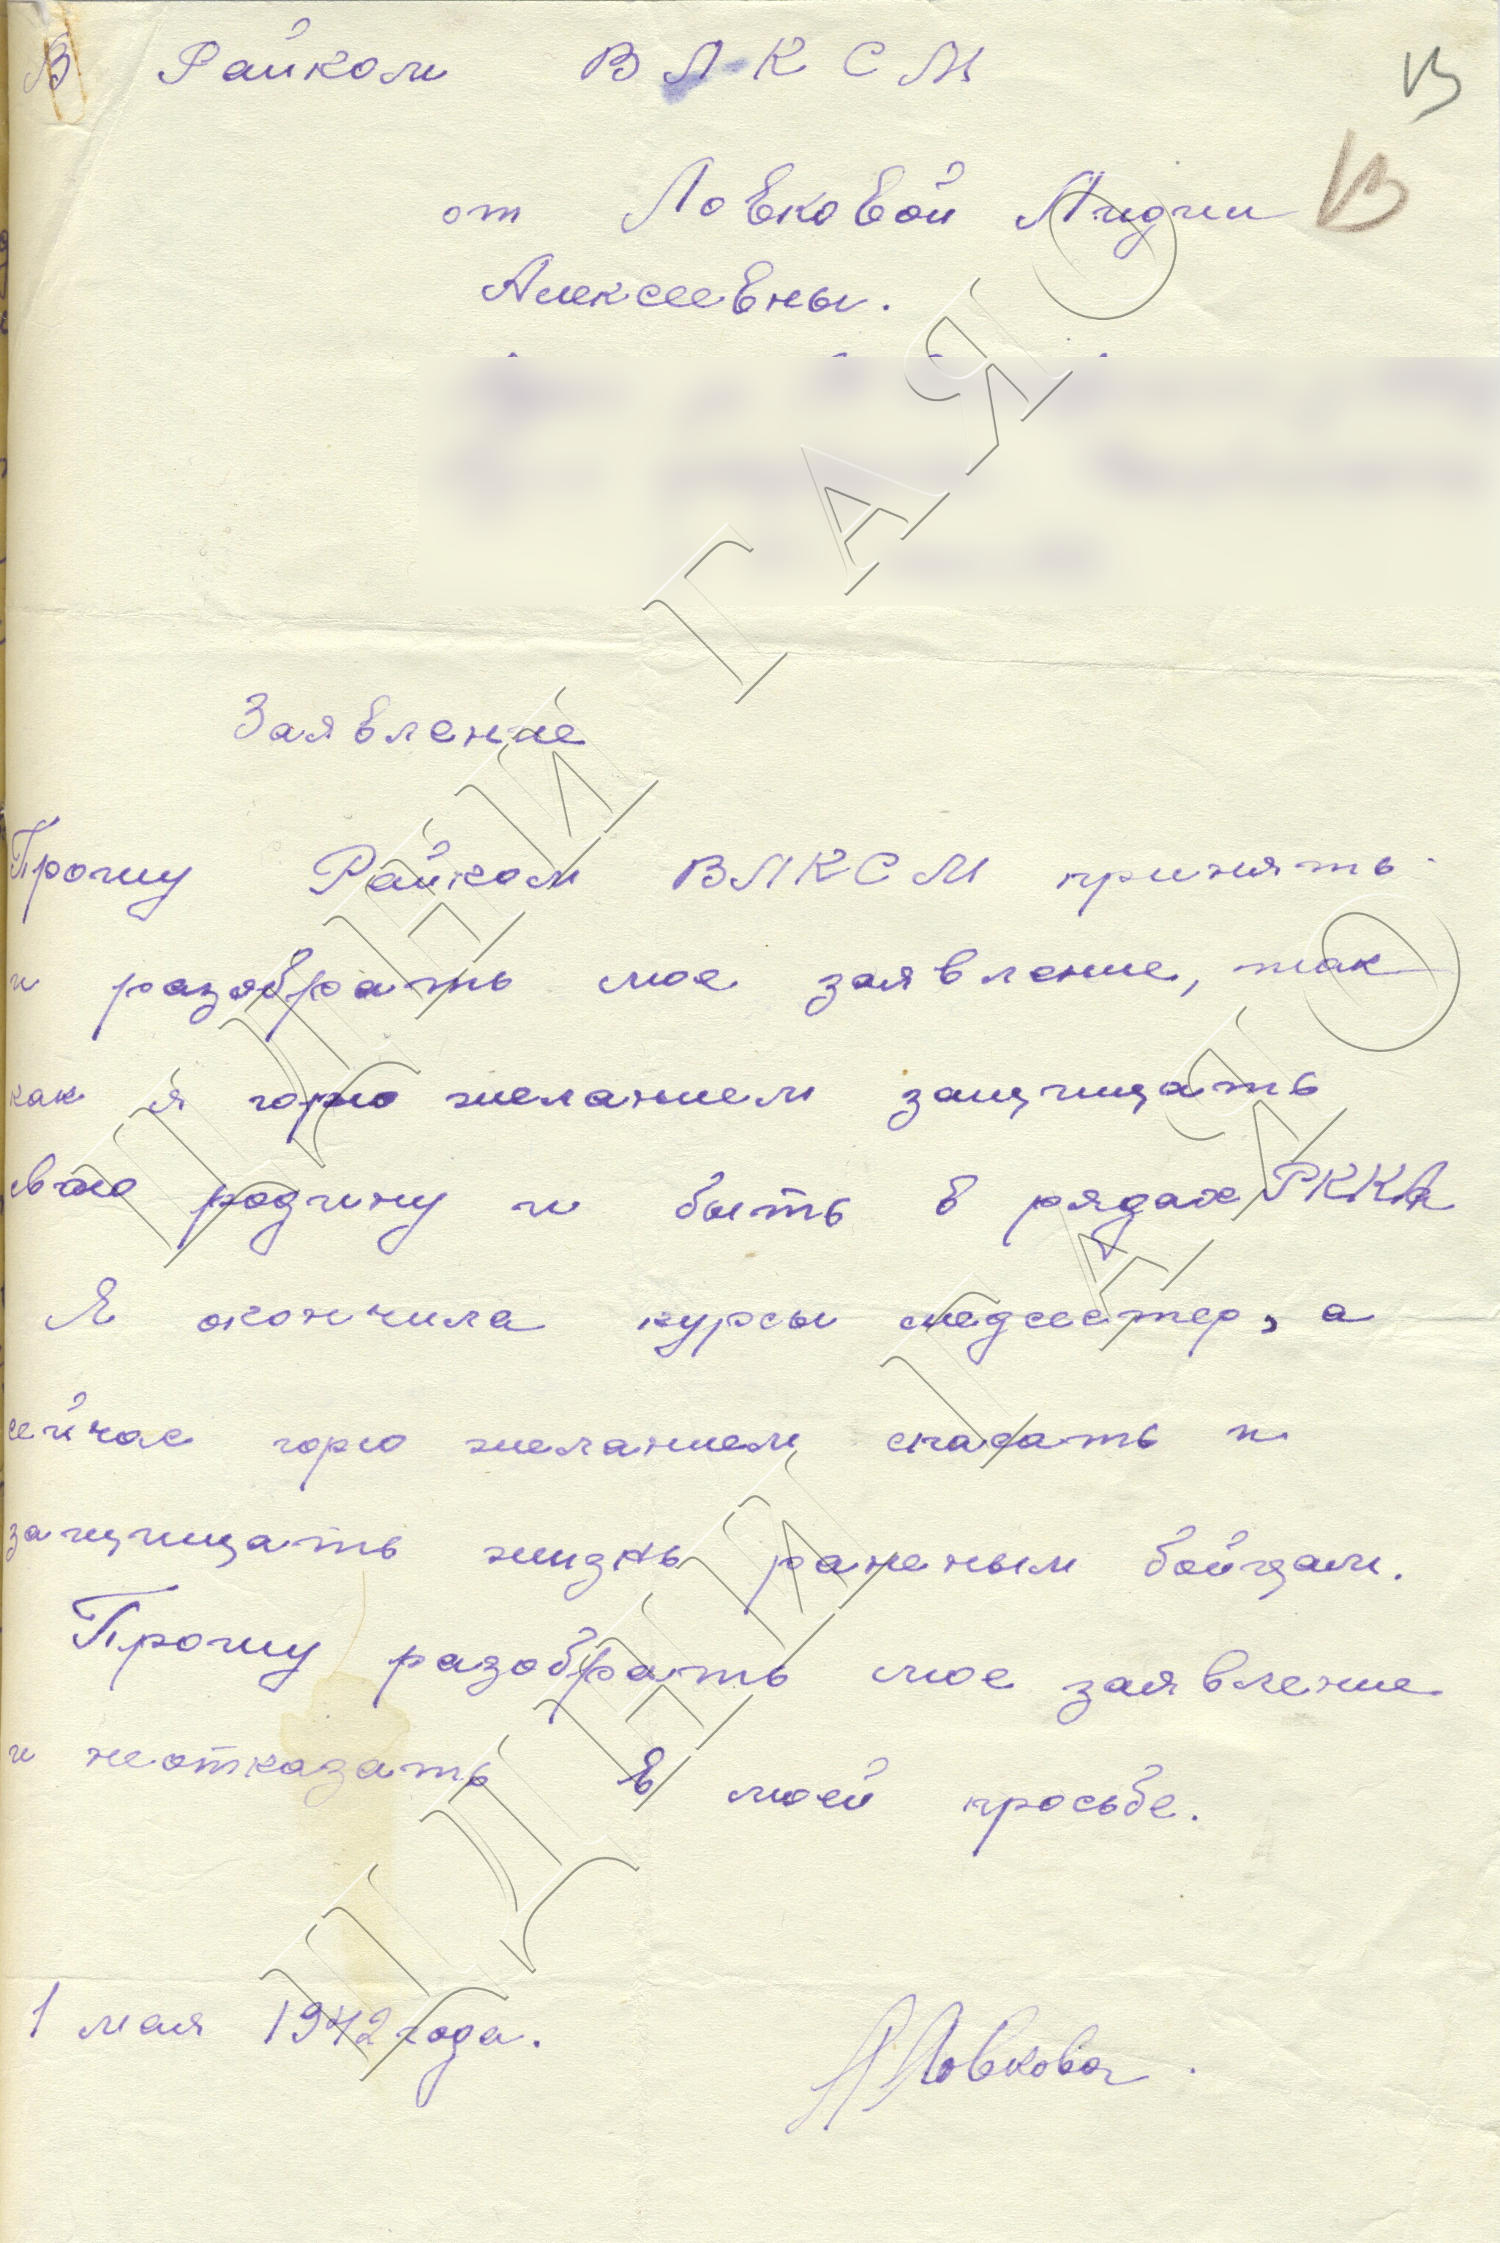 В Райком ВЛКСМ
от Ловковой Лидии
Алексеевны.
Заявление
Прошу Райком ВЛКСМ принять
и разобрать мое заявление, так
как я горю желанием защищать
свою родину и быть в рядах РККА
Я окончила курсы медсестер, а
сейчас горю желанием спасать и
защищать жизнь раненым бойцам.
Прошу разобрать мое заявление
и неотказать в моей просьбе.
1 мая 1942 года.
ЛЛовкова.
ЦДНИ ГАЯО
ЦДНИ ГАЯО